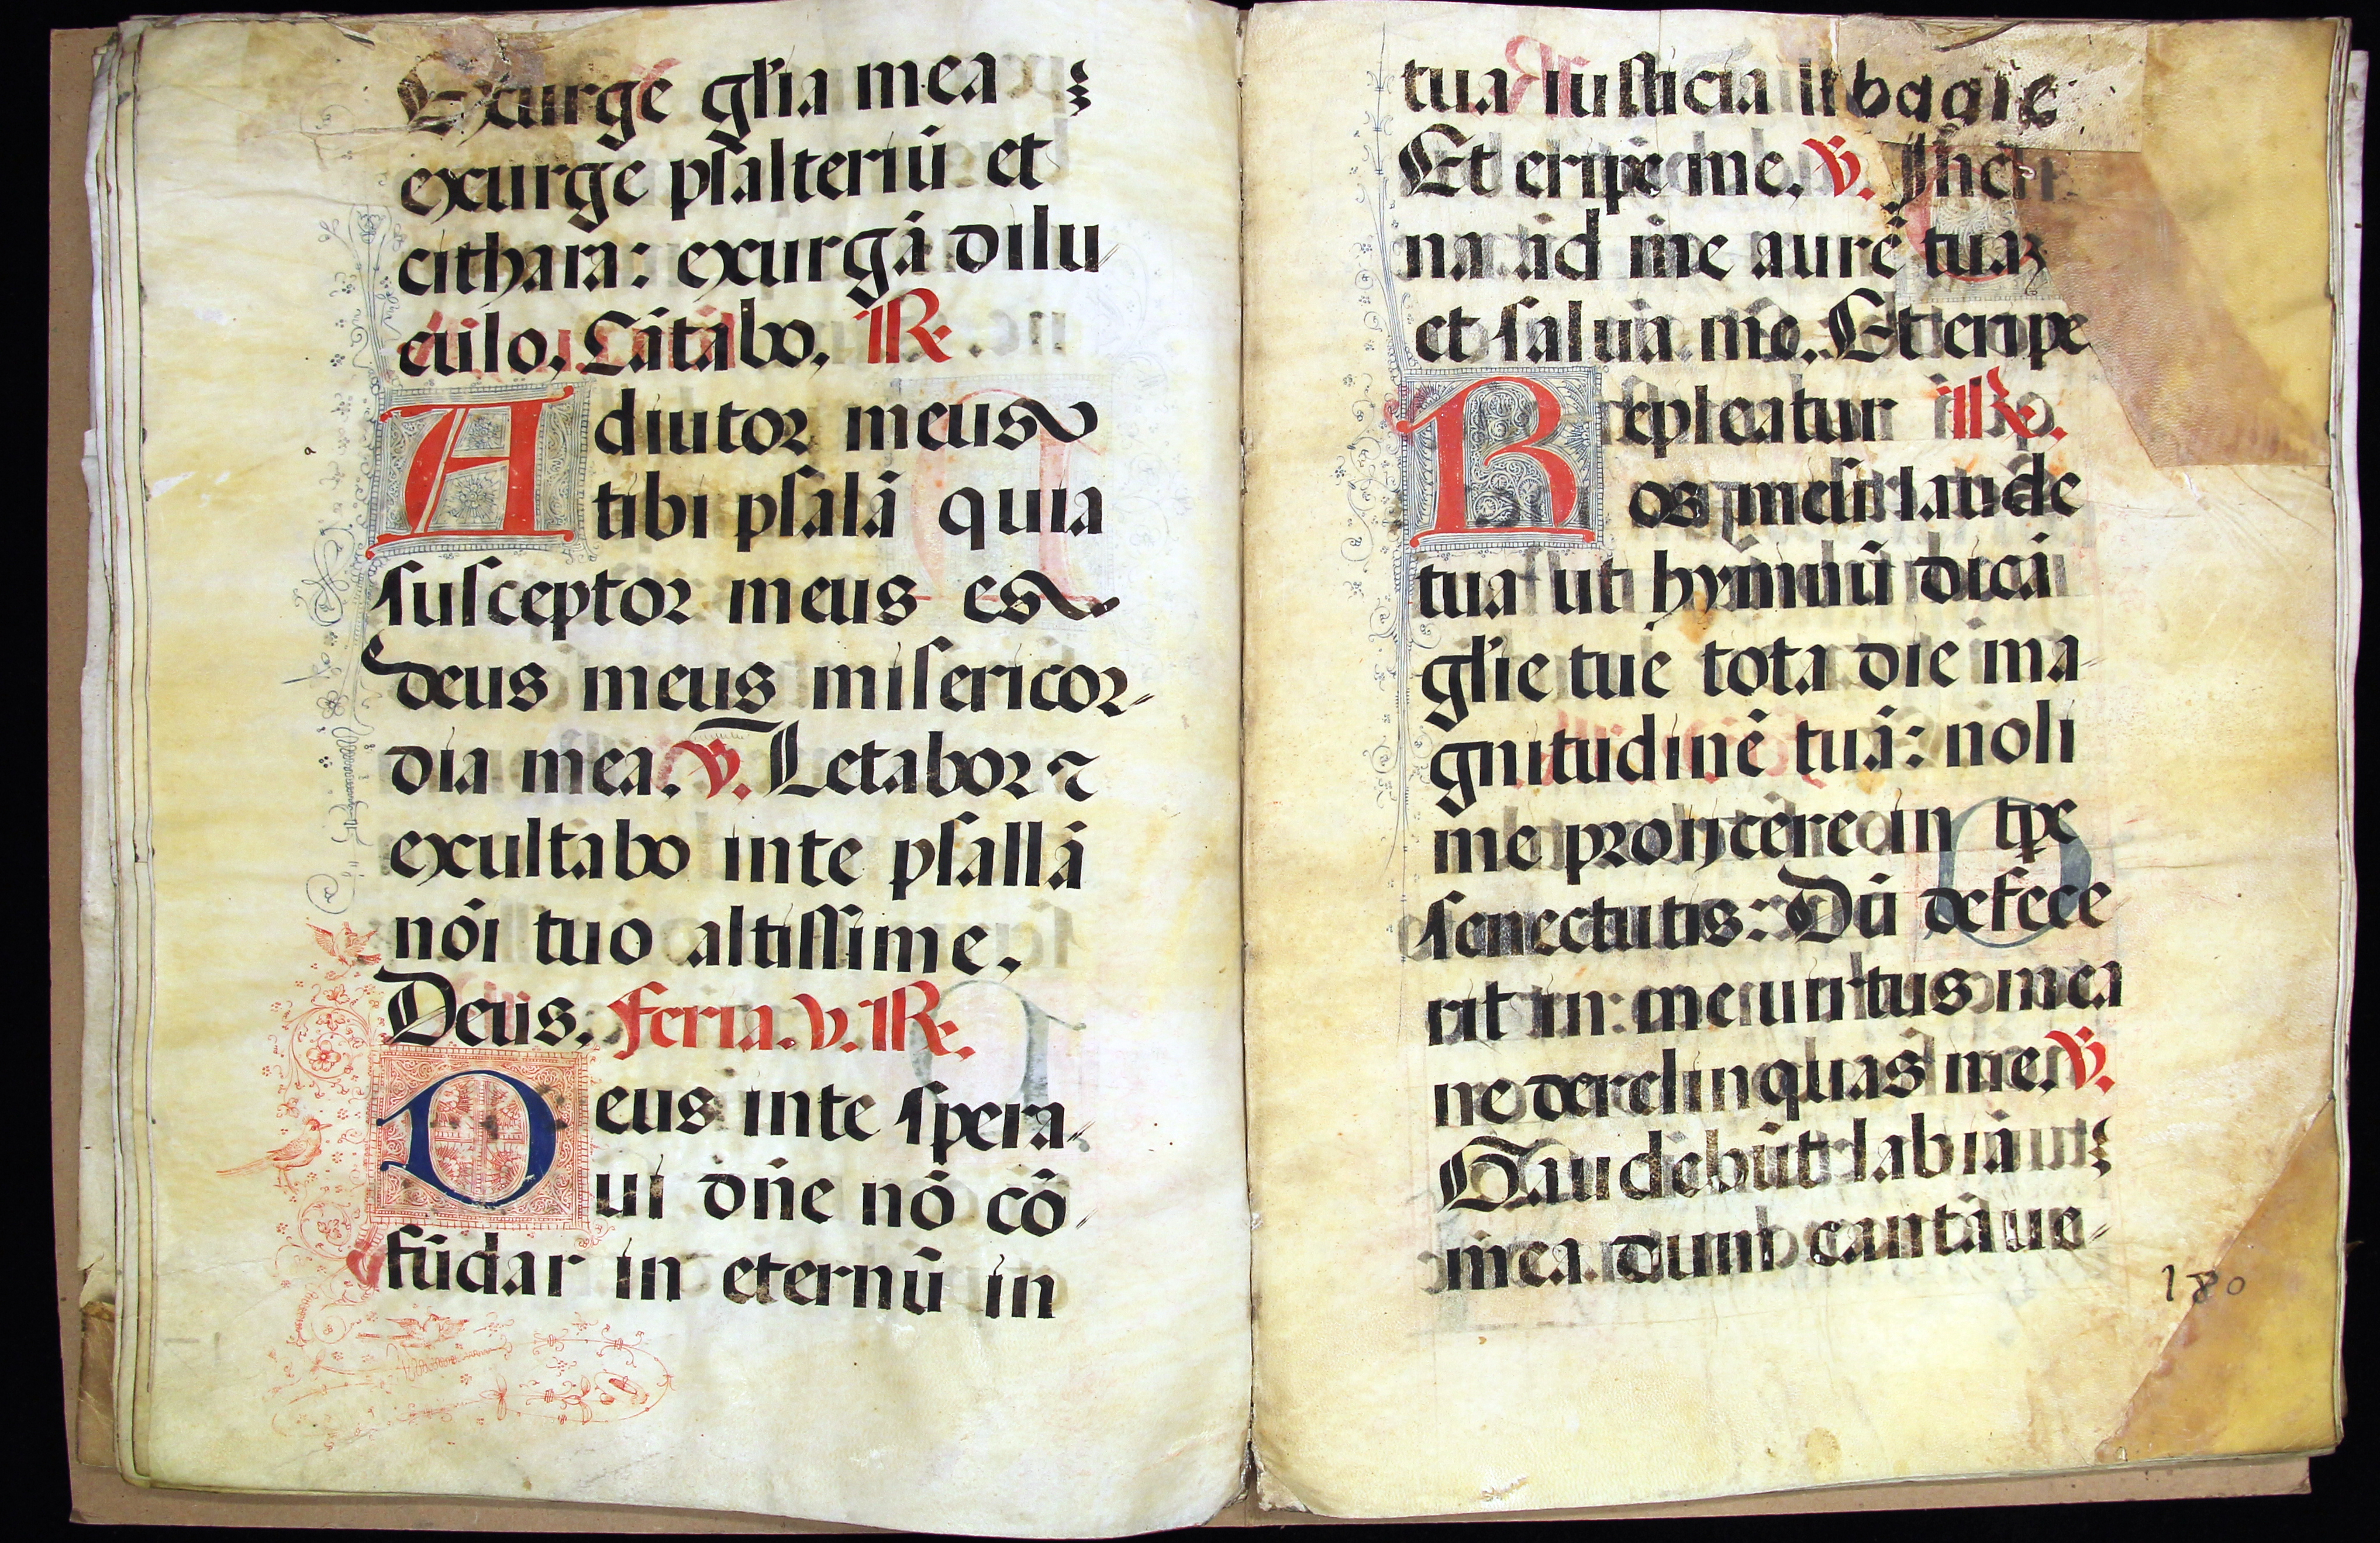 Exurge gl'ia mea
exurge psalteriū et
cithara: exurgā dilu
culo, Cātabo, R.
Adiutor meus
tibi psalā quia
susceptor meus es
deus meus misericor-
dia mea, V. Letabor ⁊
exultabo inte psallā
nōi tuo altissime,
Deus, feria. v. R.
Deus inte spera-
ui dn̄e nō cō-
fūdar in eternū in
tua iusticia libera
Et eripe me, V. Incli
na ad me aurē tuaꝫ
et salua me, Et eripe
Repleatur R.
os meū laude
tua ut hymnū dicā
gl'ie tue tota die ma-
gnitudinē tuā: noli
me proijcere in tp̄e
senectutis: Dū defece
rit in me uirtus mea
ne derelinquas me, V.
Gaudebūt labia
mea dum cantaue-
180